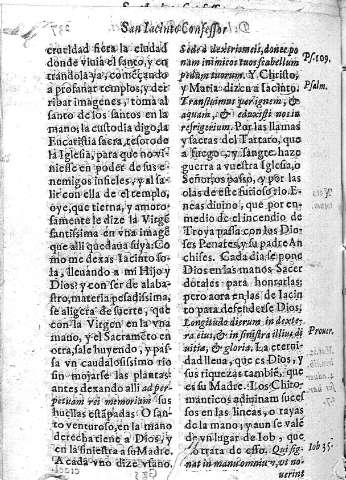 San Iacinto Confessor
crueldad fiera la ciudad
donde viuia el santo, y en
trandola ya, començando
a profanar templos, y der
ribar imagenes, toma al
santo de los santos en la
mano; la custodia digo, la
Eucaristia sacra, tesoro de
la Iglesia, para que no vi-
niesse en poder de sus e-
nemigos infieles, y al sa-
lir con ella de el templo,
oye, que tierna, y amoro-
samente le dize la Virgẽ
santissima en vna imagẽ
que alli quedaua suya: Co
mo me dexas Iacinto so-
la, lleuando a mi Hijo y
Dios; y con ser de alaba-
stro, materia pesadissima,
se aligera de suerte, que
con la Virgen en la vna
mano, y el Sacramẽto en
otra, sale huyendo, y pas-
sa vn caudalosissimo rio
sin mojarse las plantas:
antes dexando alli ad per-
petuam rei memoriam sus
huellas estãpadas. O san-
to venturoso, en la mano
derecha tiene a Dios, y
en la siniestra a su Madre.
A cada vno dize vfano.
Sede à dextris meis, donec po
nam inimicos tuos scabellum
pedum tuorum. Y Christo,
y Maria dizen a Iacinto.
Transiuimus per ignem, &
aquam, & eduxisti nos in
refrigerium. Por las llamas
y sacras del Tartaro, que
a fuego, y sangre hazo
guerra a vuestra Iglesia, o
Señor os passò, y por las
olas de este furioso rio. E-
neas diuino, que por en-
medio de el incendio de
Troya passa con los Dio-
ses Penates, y su padre An
chises. Cada dia se pone
Dios en las manos Sacer
dotales para honrarlas;
pero aora en las de Iacin
to para defenderse Dios,
Longitudo dierum in dexte-
ra eius, & in sinistra illius di
uitiæ, & gloria. La eterni-
dad llena, que es Dios, y
sus riquezas tambiẽ, que
es su Madre. Los Chiro-
manticos adiuinan suces
sos en las lineas, o rayas
de la mano; y aun se vale
de vn lugar de Iob, que
lo trata de esto. Qui sig-
nat in manu omnium, vt no-
uerint
Ps. 109.
Psalm.
Prouer.
Iob 35.